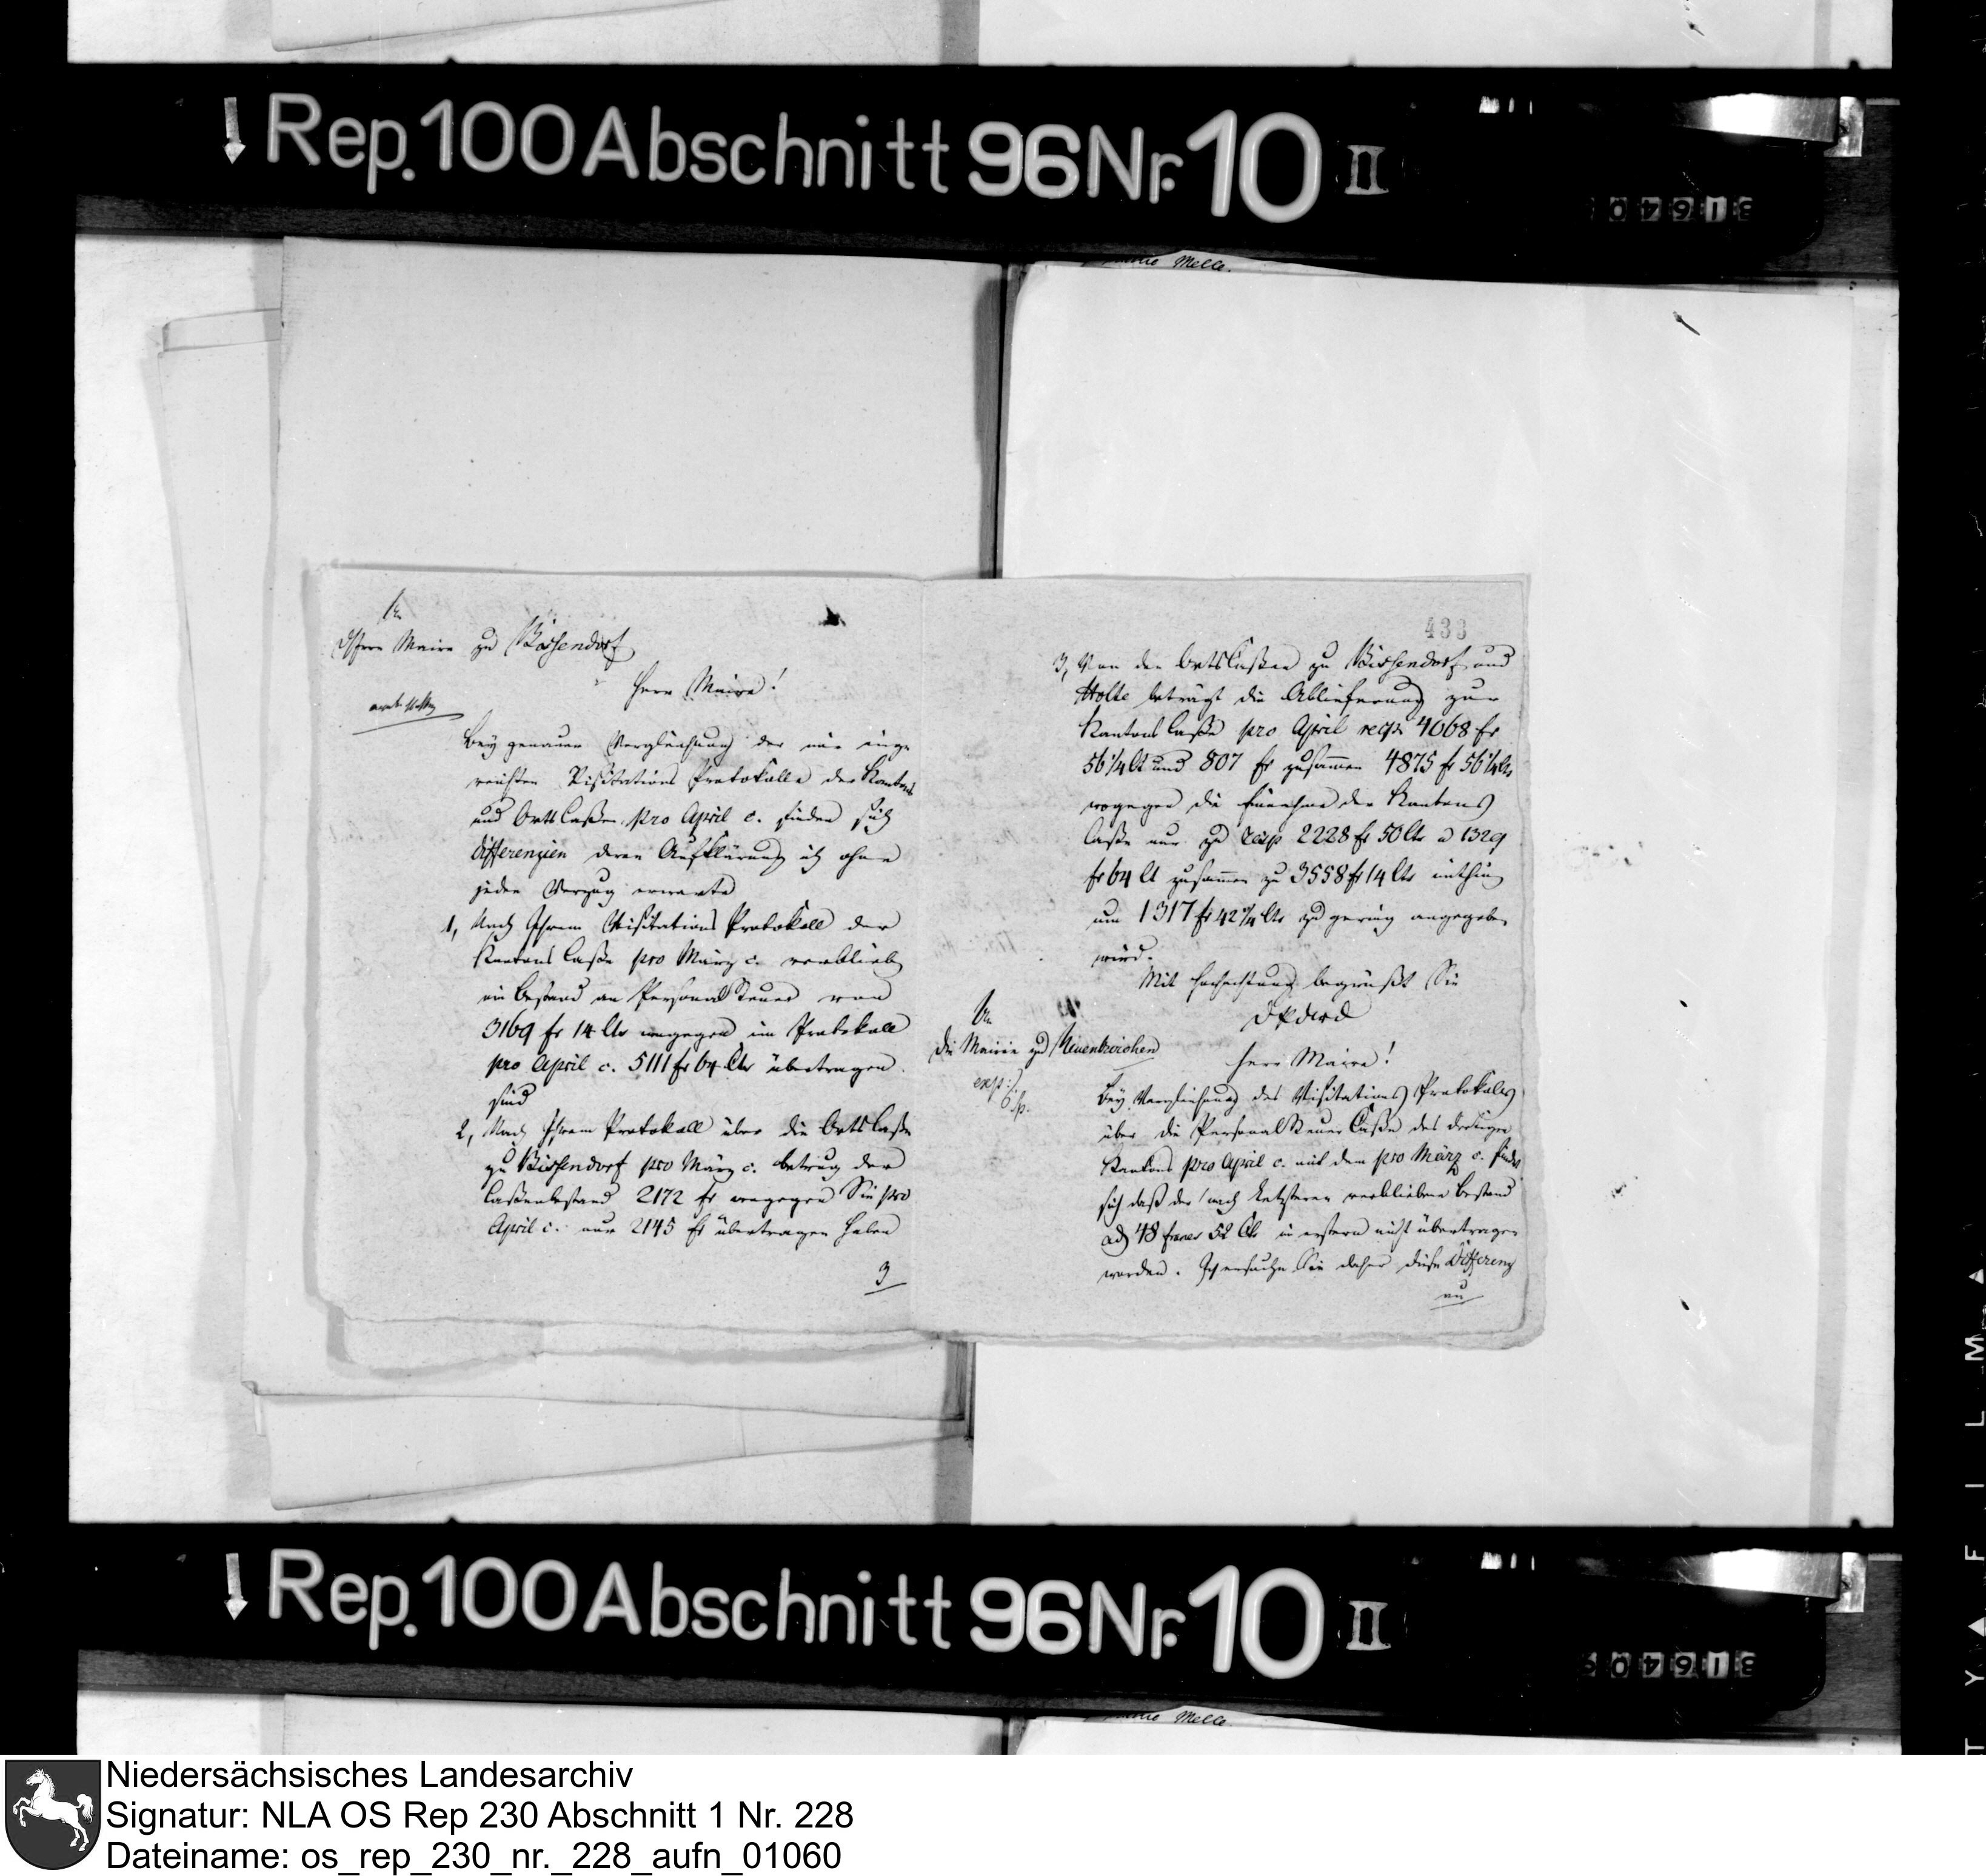 Rep. 100 Abschnitt 96 Nr. 10 II
Melle.
An
Herrn Maire zu Bissendorf
Herr Maire!
Bey genauer Vergleichung der mir einge
reichten Visitations Protokolle der Kantons
und Orts Caßen pro April c. finden sich
differenzien deren Aufklärung ich ohne
jeden Verzug erwarte
1, Nach Ihrem Visitations Protokoll der
Kantons Caße pro März c. verblieb
ein Bestand an Personal Steuer von
3169 fr 14 Cts wogegen im Protokoll
pro April c. 5111 fr 64 Cts übertragen
sind
2, Nach Ihrem Protokoll über die Orts Caße
zu Bissendorf pro März c. betrug der
Caßenbestand 2172 fr wogegen Sie pro
April c. nur 2145 fr übertragen haben
3
433
3, Von den Orts Caßen zu Bissendorf und
Holte beträgt die Ablieferung zur
Kantons Caße pro April resp 4068 fr
56 1/4 Ct und 807 fr zusammen 4875 fr 56 1/4 Cts
wogegen die Einnahme der Kantons
Caße nur zu resp 2228 fr 50 Cts u 1329
fr 64 Ct zusammen zu 3558 fr 14 Cts mithin
um 1317 fr 42 1/4 Cts zu gering angegeben
wird.
Mit Hochachtung begrüßt Sie
An
die Mairie zu Neuenkirchen
Herr Maire!
exp:
Bey Vergleichung des Visitations Protokolles
über die Personal Steuer Caße des dortigen
Kantons pro April c. mit dem pro März c. findet
sich daß der nach Letzterem verbliebene Bestand
ad 48 francs 52 Cts in erstern nicht übertragen
worden. Ich ersuche Sie daher diese Differenz
Rep. 100 Abschnitt 96 Nr. 10 II
Melle
Niedersächsisches Landesarchiv
Signatur: NLA OS Rep 230 Abschnitt 1 Nr. 228
Dateiname: os_rep_230_nr._228_aufn_01060